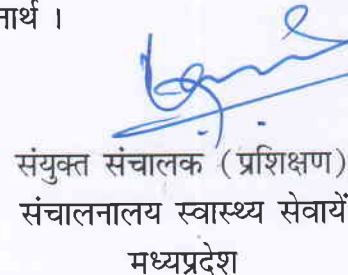 नार्थ ।
संयुक्त संचालक ( प्रशिक्षण)
संचालनालय स्वास्थ्य सेवायें
मध्यप्रदेश